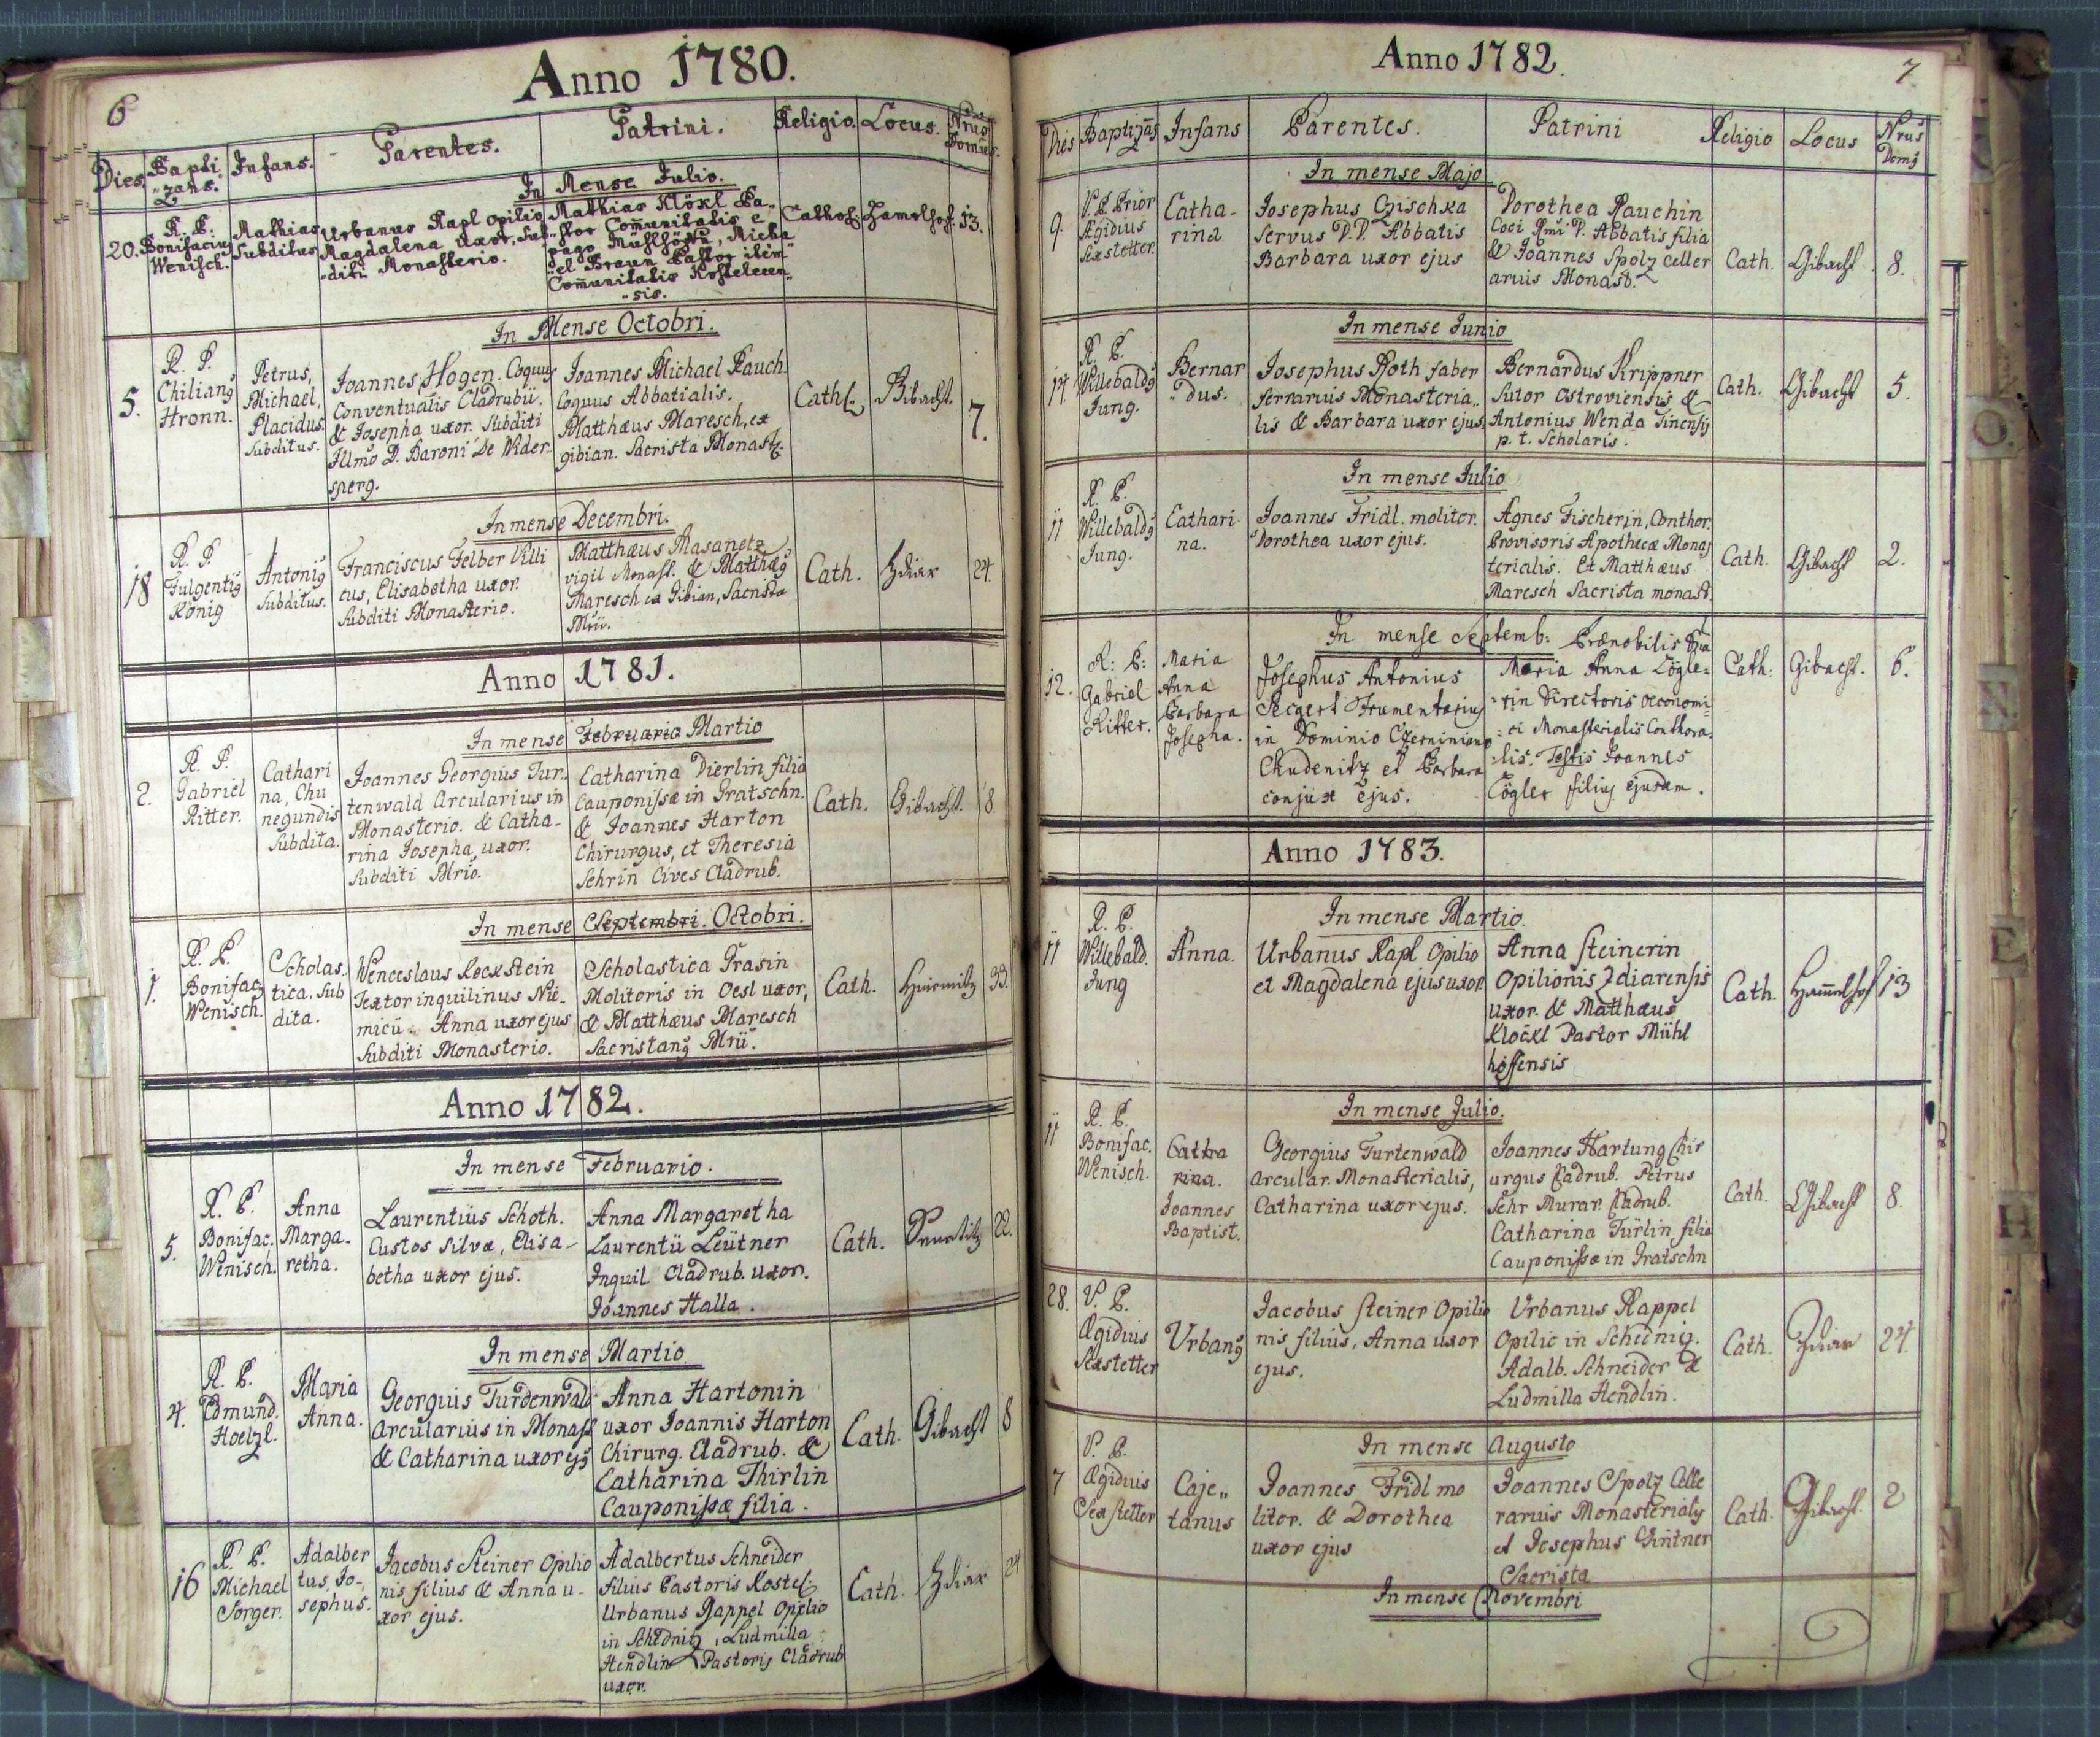 6
Anno 1780.
Dies. Bapti„zans. Infans. Parentes. Patrini. Religio. Locus. Nrus Domus.
In Mense Julio.
20.
R. P.
Bonifacius
Wenisch.
Mathias
Subditus
Urbanus Rapl opilio
Magdalena uxor, sub„
„diti Monasterio.
Mathias Klökl Pa„
„stor Comunitatis e
pago Mühlhöfen, Micha
„el Braun Pastor item
Comunitatis Kostelecen„
„sis.
Cathol.
Hamelhof.
13.
In Mense Octobri.
5.
R. P.
Chiliang
Hronn.
Petrus,
Michael,
Placidus
Subditus.
Joannes Hogen. Coquus
Conventualis Cladrubii.
& Josepha uxor. Subditi
Illmo D. Baroni De Wider-
sperg.
Joannes Michael Rauch.
Coquus Abbatialis.
Matthæus Maresch, ex
gibian. Sacrista Monast.
Cath.
Gibacht.
7.
In mense Decembri.
18
R. P.
Fulgentig
König
Antonig
Subditus.
Franciscus Felber Villi
cus, Elisabetha uxor.
Subditi Monasterio.
Matthæus Masanetz
vigil Monast. & Matthæg
Maresch ex Gibian, Sacrista
Mrii.
Cath.
Zdiar
24.
Anno 1781.
In mense Februario Martio
2.
R. P.
Gabriel
Ritter.
Cathari
na, Chu
negundis
Subdita.
Joannes Georgius Tur.
tenwald Arcularius in
Monasterio. & Catha-
rina Josepha, uxor.
Subditi Mrio.
Catharina Dierlin filia
Cauponissæ in Pratschn.
& Joannes Harton
Chirurgus, et Theresia
Sehrin Cives Cladrub.
Cath.
Gibacht.
8.
In mense Septembri. Octobri.
1.
R. P.
Bonifac
Wenisch.
Scholas„
tica, Sub
dita.
Wenceslaus Rockstein
Textor inquilinus Nie-
micii. Anna uxor ejus
Subditi Monasterio.
Scholastica Prasin
Molitoris in Oesl uxor,
& Matthæus Maresch
Sacristang Mrii.
Cath.
33.
Anno 1782.
In mense Februario.
5.
R. P.
Bonifac.
Wenisch.
Anna
Marga-
retha.
Laurentius Schoth.
Custos silvæ, Elisa-
betha uxor ejus.
Anna Margaretha
Laurentii Leütner
Inquil. Cladrub. uxor.
Joannes Halla.
Cath.
22.
In mense Martio
4.
R. P.
Edmund.
Hoelzl.
Maria
Anna.
Georgius Turdenwald
Arcularius in Monast
& Catharina uxor ejg
Anna Hartonin
uxor Joannis Harton
Chirurg. Cladrub. &
Catharina Thirlin
Cauponissæ filia.
Cath.
Gibacht
8
16
R. P.
Michael
Sorger.
Adalber
tus, Jo-
sephus.
Jacobus Steiner Opilio
nis filius & Anna u-
xor ejus.
Adalbertus Schneider
filius Pastoris Kostel.
Urbanus Rappel Opilio
in Schednitz, Ludmilla
Hendlin Pastoris Cladrub
uxor.
Cath.
Zdiar
24
7
Anno 1782.
Dies Baptizas Infans Parentes. Patrini Religio Locus Nrus Domg
In mense Majo
9.
V. P. Prior
Ægidius
Sexstetter.
Catha-
rina
Josephus Czischka
servus P. P. Abbatis
Barbara uxor ejus
Dorothea Rauchin
Coci Rmi P. Abbatis filia
& Joannes Spolz celler
arius Monast.
Cath.
Gibacht
8.
In mense Junio
14
R. P.
Willebaldg
Jung.
Bernar
„dus.
Josephus Roth faber
ferrarius Monasteria„
lis & Barbara uxor ejus.
Bernardus Krippner
Sutor Ostroviensis &
Antonius Wenda Tinensis
p. t. Scholaris.
Cath.
Gibacht
5.
In mense Julio
11
R. P.
Willebaldg
Jung.
Cathari
na.
Joannes Fridl. molitor.
Dorothea uxor ejus.
Agnes Fischerin, Conthor.
Provisoris Apothecæ Monas
terialis. Et Matthæus
Maresch Sacrista monast.
Cath.
Gibacht
2.
In mense Septemb:
12.
R: P:
Gabriel
Ritter.
Maria
Anna
Barbara
Josepha.
Josephus Antonius
Siegert Frumentarius
in Dominio Czerniniano
Chudenitz et Barbara
conjux ejus.
Prænobilis Dna
Maria Anna Cögle:
:rin Directoris œconomi:
:ci Monasterialis Conthora:
:lis. Testis Joannes
Cögler filius ejusdem.
Cath:
Gibacht.
6.
Anno 1783.
In mense Martio
11
R. P.
Willebald.
Jung
Anna.
Urbanus Rapl Opilio
et Magdalena ejus uxor.
Anna Steinerin
Opilionis Zdiarensis
uxor. & Matthæus
Klöckl Pastor Mühl
höffensis
Cath.
Hamelhof
13
In mense Julio.
11
R. P.
Bonifac.
Wenisch.
Catha
rina.
Joannes
Baptist.
Georgius Turtenwald
Arcular. Monasterialis,
Catharina uxor ejus.
Joannes Hartung Chir
urgus Cladrub. Petrus
Sehr Murar. Cladrub.
Catharina Türlin filia
Cauponissæ in Pratschn
Cath.
Gibacht
8.
28.
V. P.
Ægidius
Sexstetter
Urbang
Jacobus Steiner Opilio
nis filius, Anna uxor
ejus.
Urbanus Rappel
Opilio in Schednitz.
Adalb. Schneider &
Ludmilla Hendlin.
Cath.
Zdiar
24.
In mense Augusto
7
V. P.
Ægidius
Sexstetter
Caje„
tanus
Joannes Fridl mo
litor. & Dorothea
uxor ejus
Joannes Spolz Celle
rarius Monasterialis
et Josephus Gintner
Sacrista
Cath.
Gibacht.
2
In mense Novembri